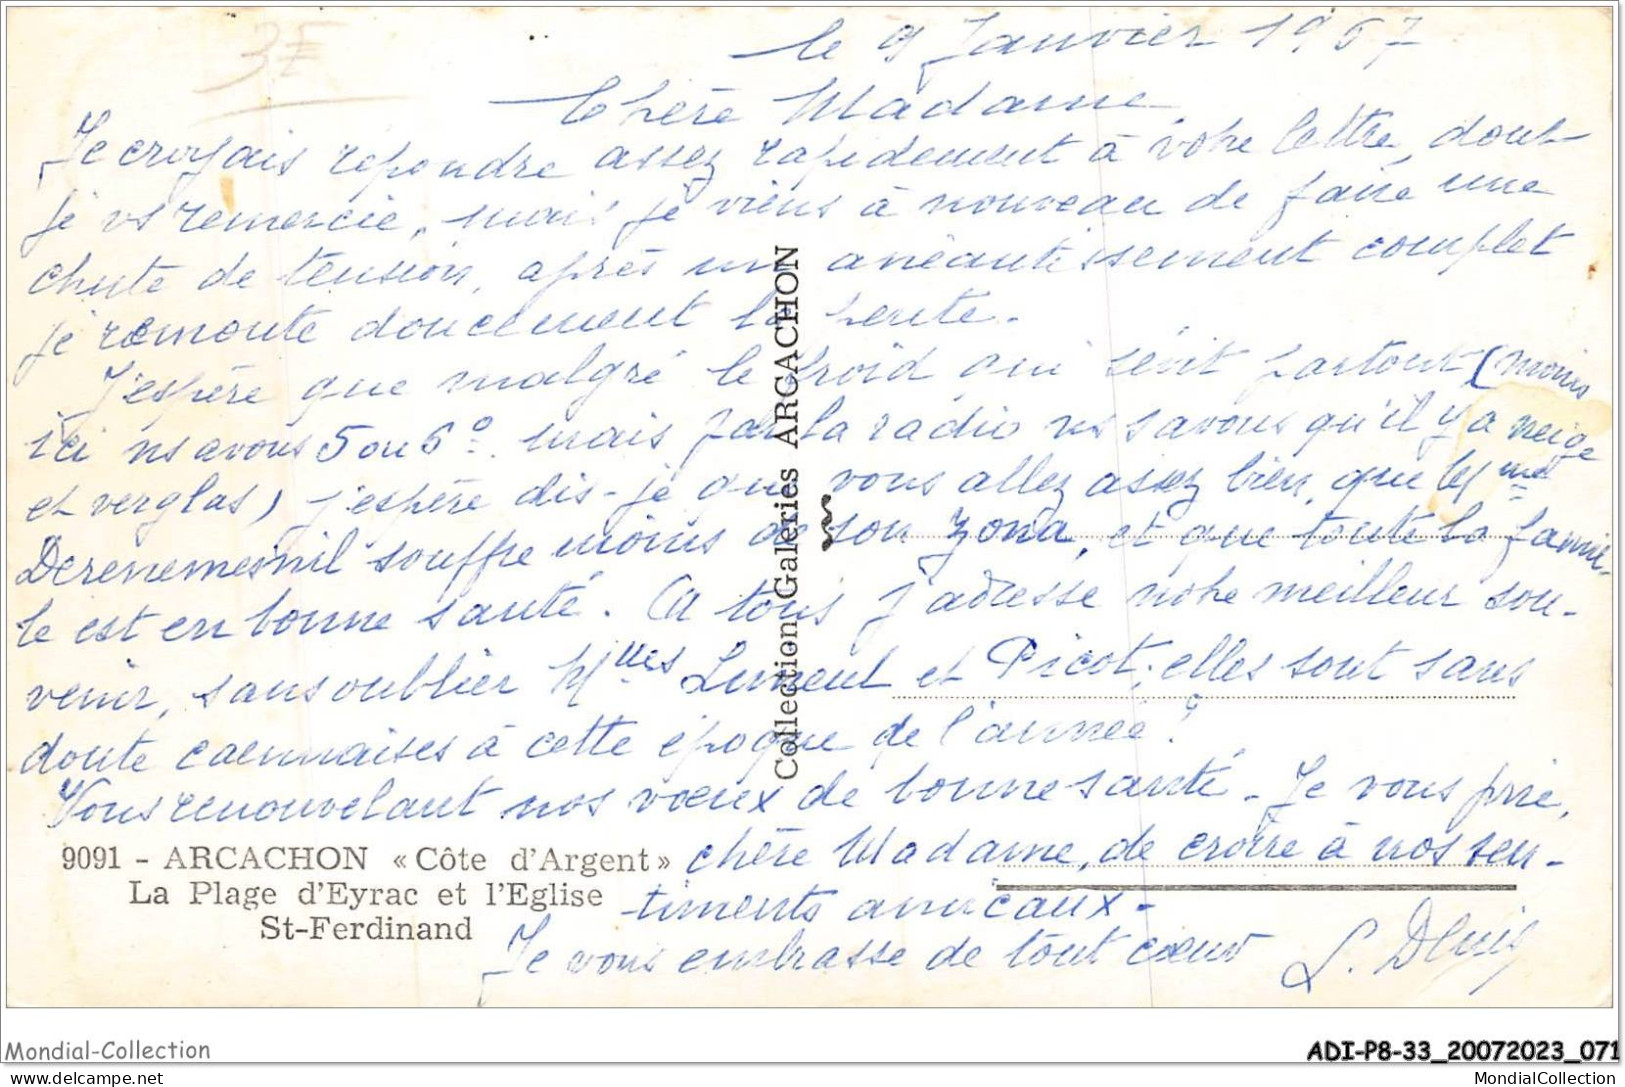 3F
le 9 Janvier 1957
Chère Madame
Je croyais repondre assez rapidement à votre lettre, dont
je vs remercie, mais je viens à nouveau de faire une
chute de tension, après un anéantissement complet
je remonte doucement la pente.
J'espère que malgré le froid qui sévit partout (moins
ici ns avons 5 ou 6°. mais par la radio ns savons qu'il y a neige
et verglas) j'espère dis-je que vous allez assez bien, que
Derenemesnil souffre moins de son zona, et que toute la famil-
le est en bonne santé. A tous j'adresse notre meilleur sou-
venir, sans oublier Mlles et Picot, elles sont sans
doute caennaises à cette époque de l'année?
Vous renouvelant nos vœux de bonne santé - Je vous prie,
chère Madame, de croire à nos sen-
timents amicaux -
Je vous embrasse de tout cœur
Collection Galeries ARCACHON
9091 - ARCACHON « Côte d'Argent »
La Plage d'Eyrac et l'Eglise
St-Ferdinand
Mondial-Collection
ADI-P8-33_20072023_071
https://www.delcampe.net
MondialCollection